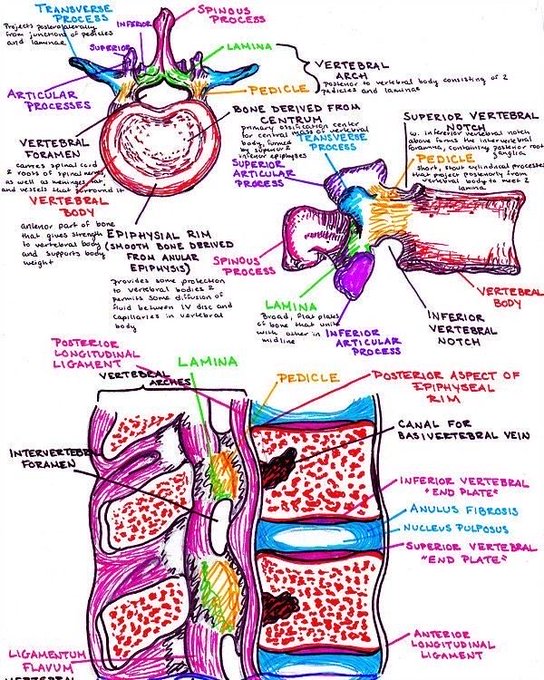 TRANSVERSE
PROCESS
Projects posterolaterally
from junction of pedicles
and laminae
SUPERIOR
INFERIOR
SPINOUS
PROCESS
LAMINA
VERTEBRAL
ARCH
posterior to vertebral body consisting of 2
pedicles and laminas
ARTICULAR
PROCESSES
PEDICLE
BONE DERIVED FROM
CENTRUM
primary ossification center
for central mass of vertebral
body, formed
by superior &
inferior epiphyses
VERTEBRAL
FORAMEN
carries spinal cord
& roots of spinal nerves,
as well as meninges
and vessels that surround it
VERTEBRAL
BODY
anterior part of bone
that gives strength
to vertebral body
and supports body
weight
EPIPHYSIAL RIM
(SMOOTH BONE DERIVED
FROM ANULAR
EPIPHYSIS)
Provides some protection
to vertebral bodies &
permits some diffusion of
fluid between IV disc and
capillaries in vertebral
body
SUPERIOR VERTEBRAL
NOTCH
w. inferior vertebral notch
above forms the intervertebral
foramina, containing posterior root
ganglia
TRANSVERSE
PROCESS
PEDICLE
Short, stout cylindrical processes
that project posteriorly from
vertebral body to meet 2
lamina
SUPERIOR
ARTICULAR
PROCESS
SPINOUS
PROCESS
LAMINA
Broad, flat plates
of bone that unite
with other in
midline
INFERIOR
ARTICULAR
PROCESS
INFERIOR
VERTEBRAL
NOTCH
VERTEBRAL
BODY
POSTERIOR
LONGITUDINAL
LIGAMENT
VERTEBRAL
ARCHES
LAMINA
PEDICLE
POSTERIOR ASPECT OF
EPIPHYSEAL
RIM
CANAL FOR
BASIVERTEBRAL VEIN
INTERVERTEBRAL
FORAMEN
INFERIOR VERTEBRAL
"END PLATE"
ANULUS FIBROSIS
NUCLEUS PULPOSUS
SUPERIOR VERTEBRAL
"END PLATE"
ANTERIOR
LONGITUDINAL
LIGAMENT
LIGAMENTUM
FLAVUM
VERTEBRAL